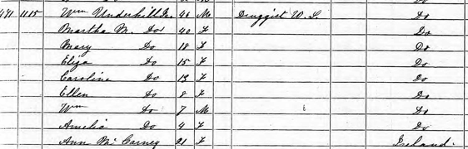 Do
471 1115 Wm Underhill Jr. 46 M Druggist W. S. Do
Martha M. Do 40 F Do
Mary Do 18 F Do
Eliza Do 15 F Do
Caroline Do 13 F Do
Ellen Do 8 F Do
Wm Do 7 M Do
Amelia Do 4 F Do
Ann McCarney 21 F Ireland